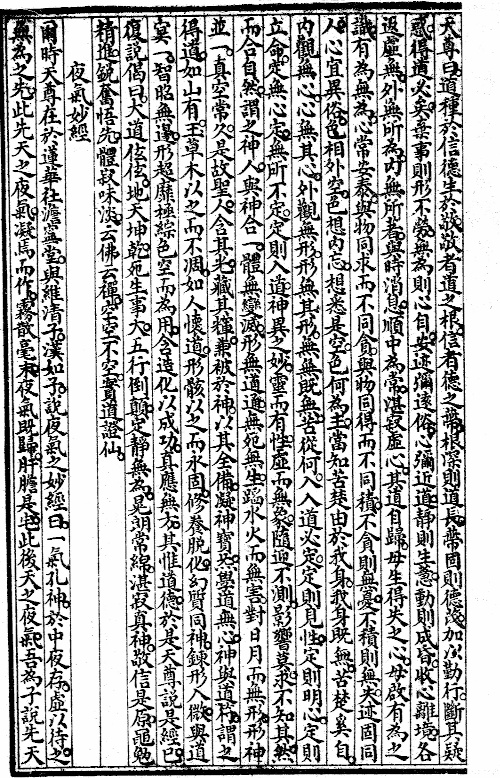 天尊曰道種於信德生於敬敬者道之根信者德之蒂根深則道長蒂固則德茂加以勤行斷其疑
惑得道必矣棄事則形不勞無為則心自安迹彌遠俗心彌近道靜則生慧動則成昏收心離境各
返虛無外無所為內無所著與時消息順中為常湛寂虛心其道自歸毋生得失之心毋啟有為之
識有為無為心常安泰與物同求而不同貪與物同得而不同積不貪則無憂不積則無失迹固同
人心宜異俗色相外空色想內忘想悉是空色何為主當知苦楚由於我身我身既無苦楚奚自
內觀無心心無其心外觀無形形無其形無無既無苦從何入入道必定定則見性定則明心定則
立命定無心定無所不定定則入道神異之妙靈而有性虛而無象隨迎不測影響莫求不知其然
而合自然謂之神人與神合一體無變滅形無適適無死無生蹈水火而無害對日月而無形形神
並一真空常久是故聖人含其光藏其輝兼被於神以其全備凝神寶炁學道無心神與道符謂之
得道如山有玉草木以之而不凋如人懷道形骸以之而永固修養脫化幻質同神鍊形入微與道
冥一智昭無邊形超靡極綜色空而為用含造化以成功真應無方其惟道德於是天尊說是經已
復說偈曰大道伭伭地天坤乾死生事大五行倒顛定靜無為晃朗常綿湛寂真神敬信是原黽勉
精進銳奮悟先體寂味淡云佛云禪空空不空實道證仙
夜氣妙經
爾時天尊在於蓮華社澹寧堂與維清子漢如子說夜氣之妙經曰一氣孔神於中夜存虛以待之
無為之先此先天之夜氣凝焉而作霧散毫末夜氣既歸肝膽是宅此後天之夜氣吾為子說先天